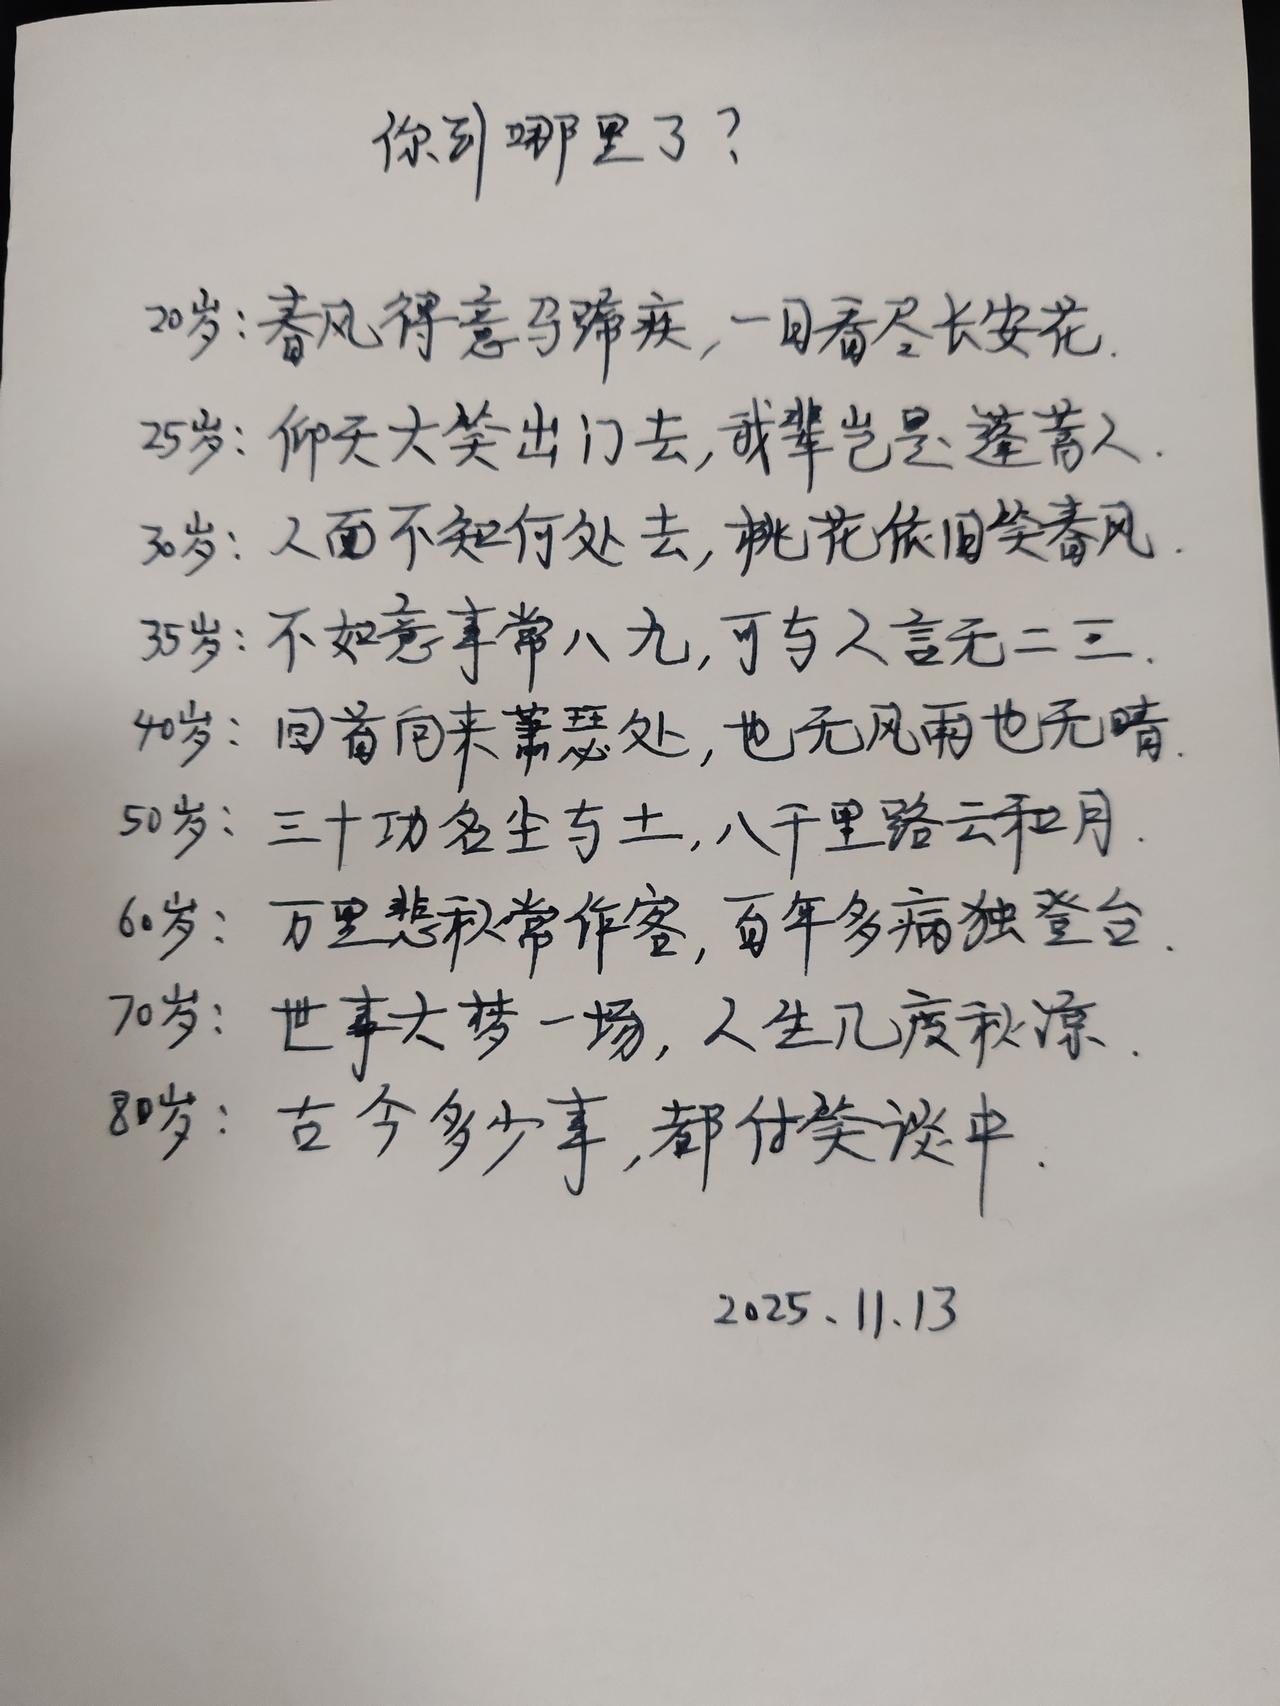 你到哪里了?
20岁:春风得意马蹄疾,一日看尽长安花.
25岁:仰天大笑出门去,我辈岂是蓬蒿人.
30岁:人面不知何处去,桃花依旧笑春风.
35岁:不如意事常八九,可与人言无二三.
40岁:回首向来萧瑟处,也无风雨也无晴.
50岁:三十功名尘与土,八千里路云和月.
60岁:万里悲秋常作客,百年多病独登台.
70岁:世事大梦一场,人生几度秋凉.
80岁:古今多少事,都付笑谈中.
2025.11.13